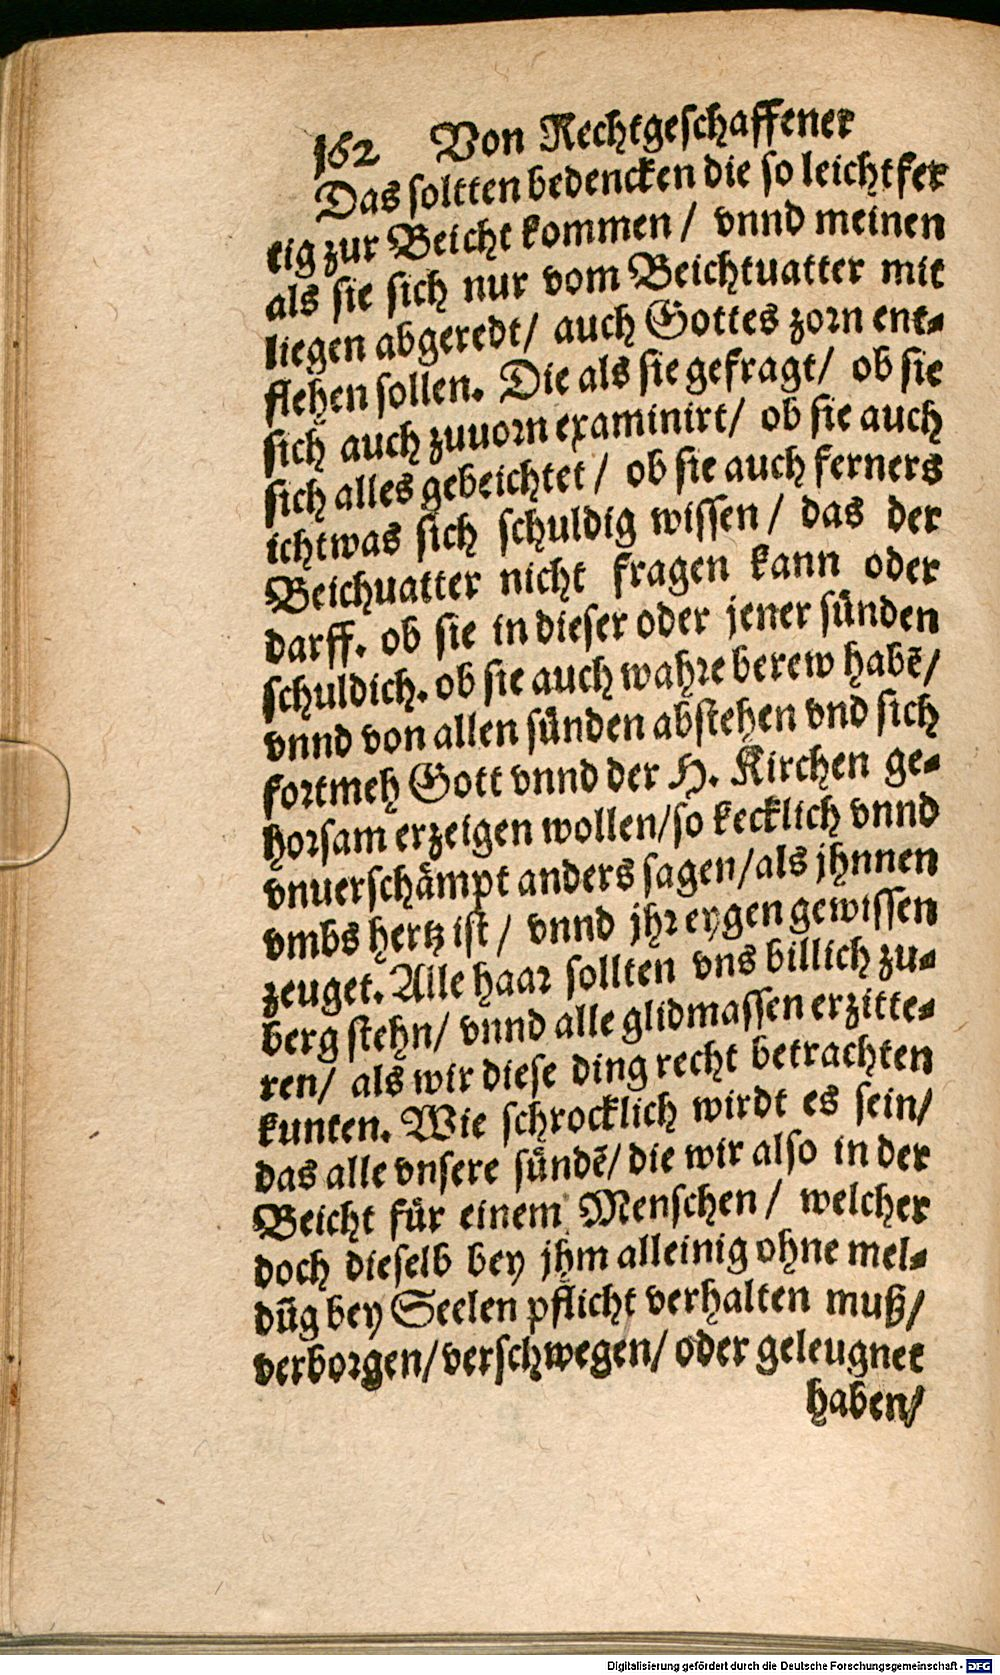 162 Von Rechtgeschaffener
Das soltten bedencken die so leichtfer
tig zur Beicht kommen / vnnd meinen
als sie sich nur vom Beichtuatter mit
liegen abgeredt/ auch Gottes zorn ent-
flehen sollen. Die als sie gefragt/ ob sie
sich auch zuuorn examinirt/ ob sie auch
sich alles gebeichtet / ob sie auch ferners
ichtwas sich schuldig wissen / das der
Beichuatter nicht fragen kann oder
darff. ob sie in dieser oder jener sünden
schuldich. ob sie auch wahre berew habē/
vnnd von allen sünden abstehen vnd sich
fortmeh Gott vnnd der H. Kirchen ge-
horsam erzeigen wollen/so kecklich vnnd
vnuerschämpt anders sagen/als jhnnen
vmbs hertz ist / vnnd jhr eygen gewissen
zeuget. Alle haar sollten vns billich zu-
berg stehn/ vnnd alle glidmassen erzitte-
ren/ als wir diese ding recht betrachten
kunten. Wie schrocklich wirdt es sein/
das alle vnsere sündē/ die wir also in der
Beicht für einem Menschen / welcher
doch dieselb bey jhm alleinig ohne mel-
dūg bey Seelen pflicht verhalten muß/
verborgen/ verschwegen/ oder geleugnet
haben/
Digitalisierung gefördert durch die Deutsche Forschungsgemeinschaft - DFG